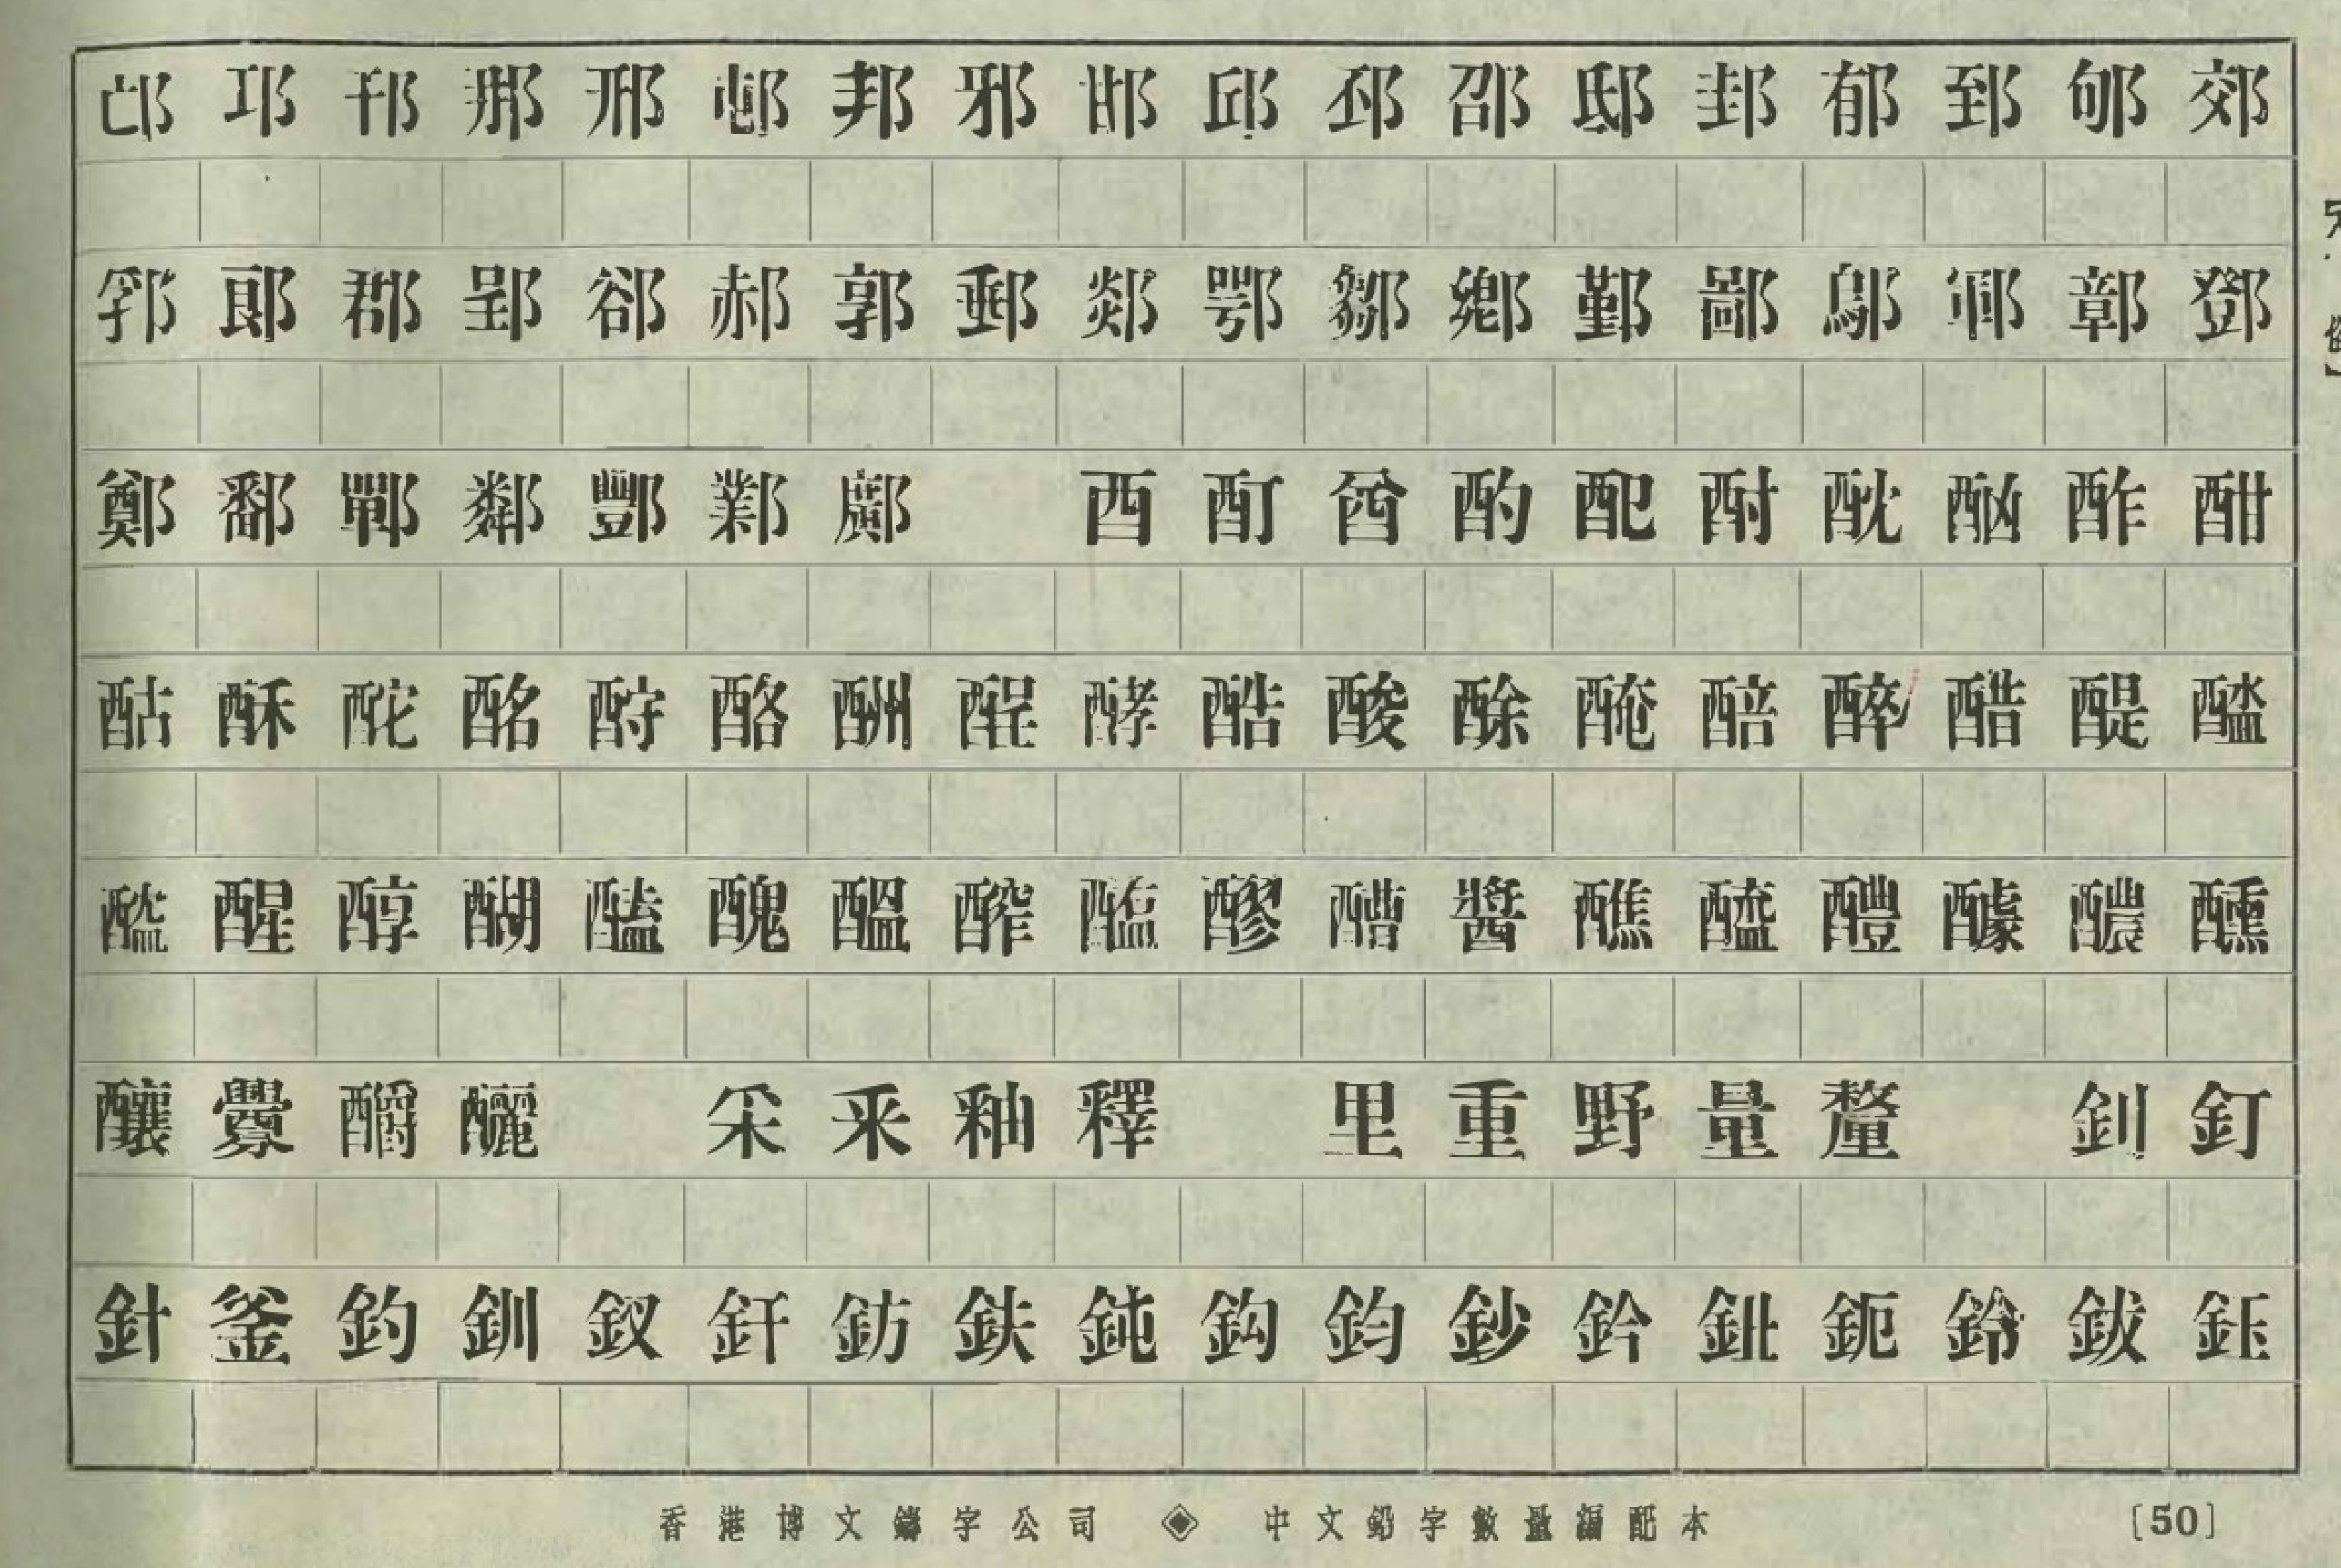 邙邛邗那邢邨邦邪邯邱邳邵邸邽郁郅郇郊
郛郎郡郢郤郝郭郵郯鄂鄒鄉鄞鄙鄔鄆鄣鄧
鄭鄱鄲鄰酆鄴鄺 酉酊酋酌配酎酖酗酢酣
酤酥酡酩酧酪酬酲酵酷酸酴醃醅醉醋醍
醒醇醐醢醜醞醡醪醩醬醮醯醴醵醲醺
釀釁釂釃 采釆釉釋 里重野量釐 釗釘
針釜釣釧釵釬鈁鈇鈍鈎鈞鈔鈐鈚鈪鈴鈸鈺
香港博文鑄字公司 ◈ 中文鉛字數量編配本
〔50〕